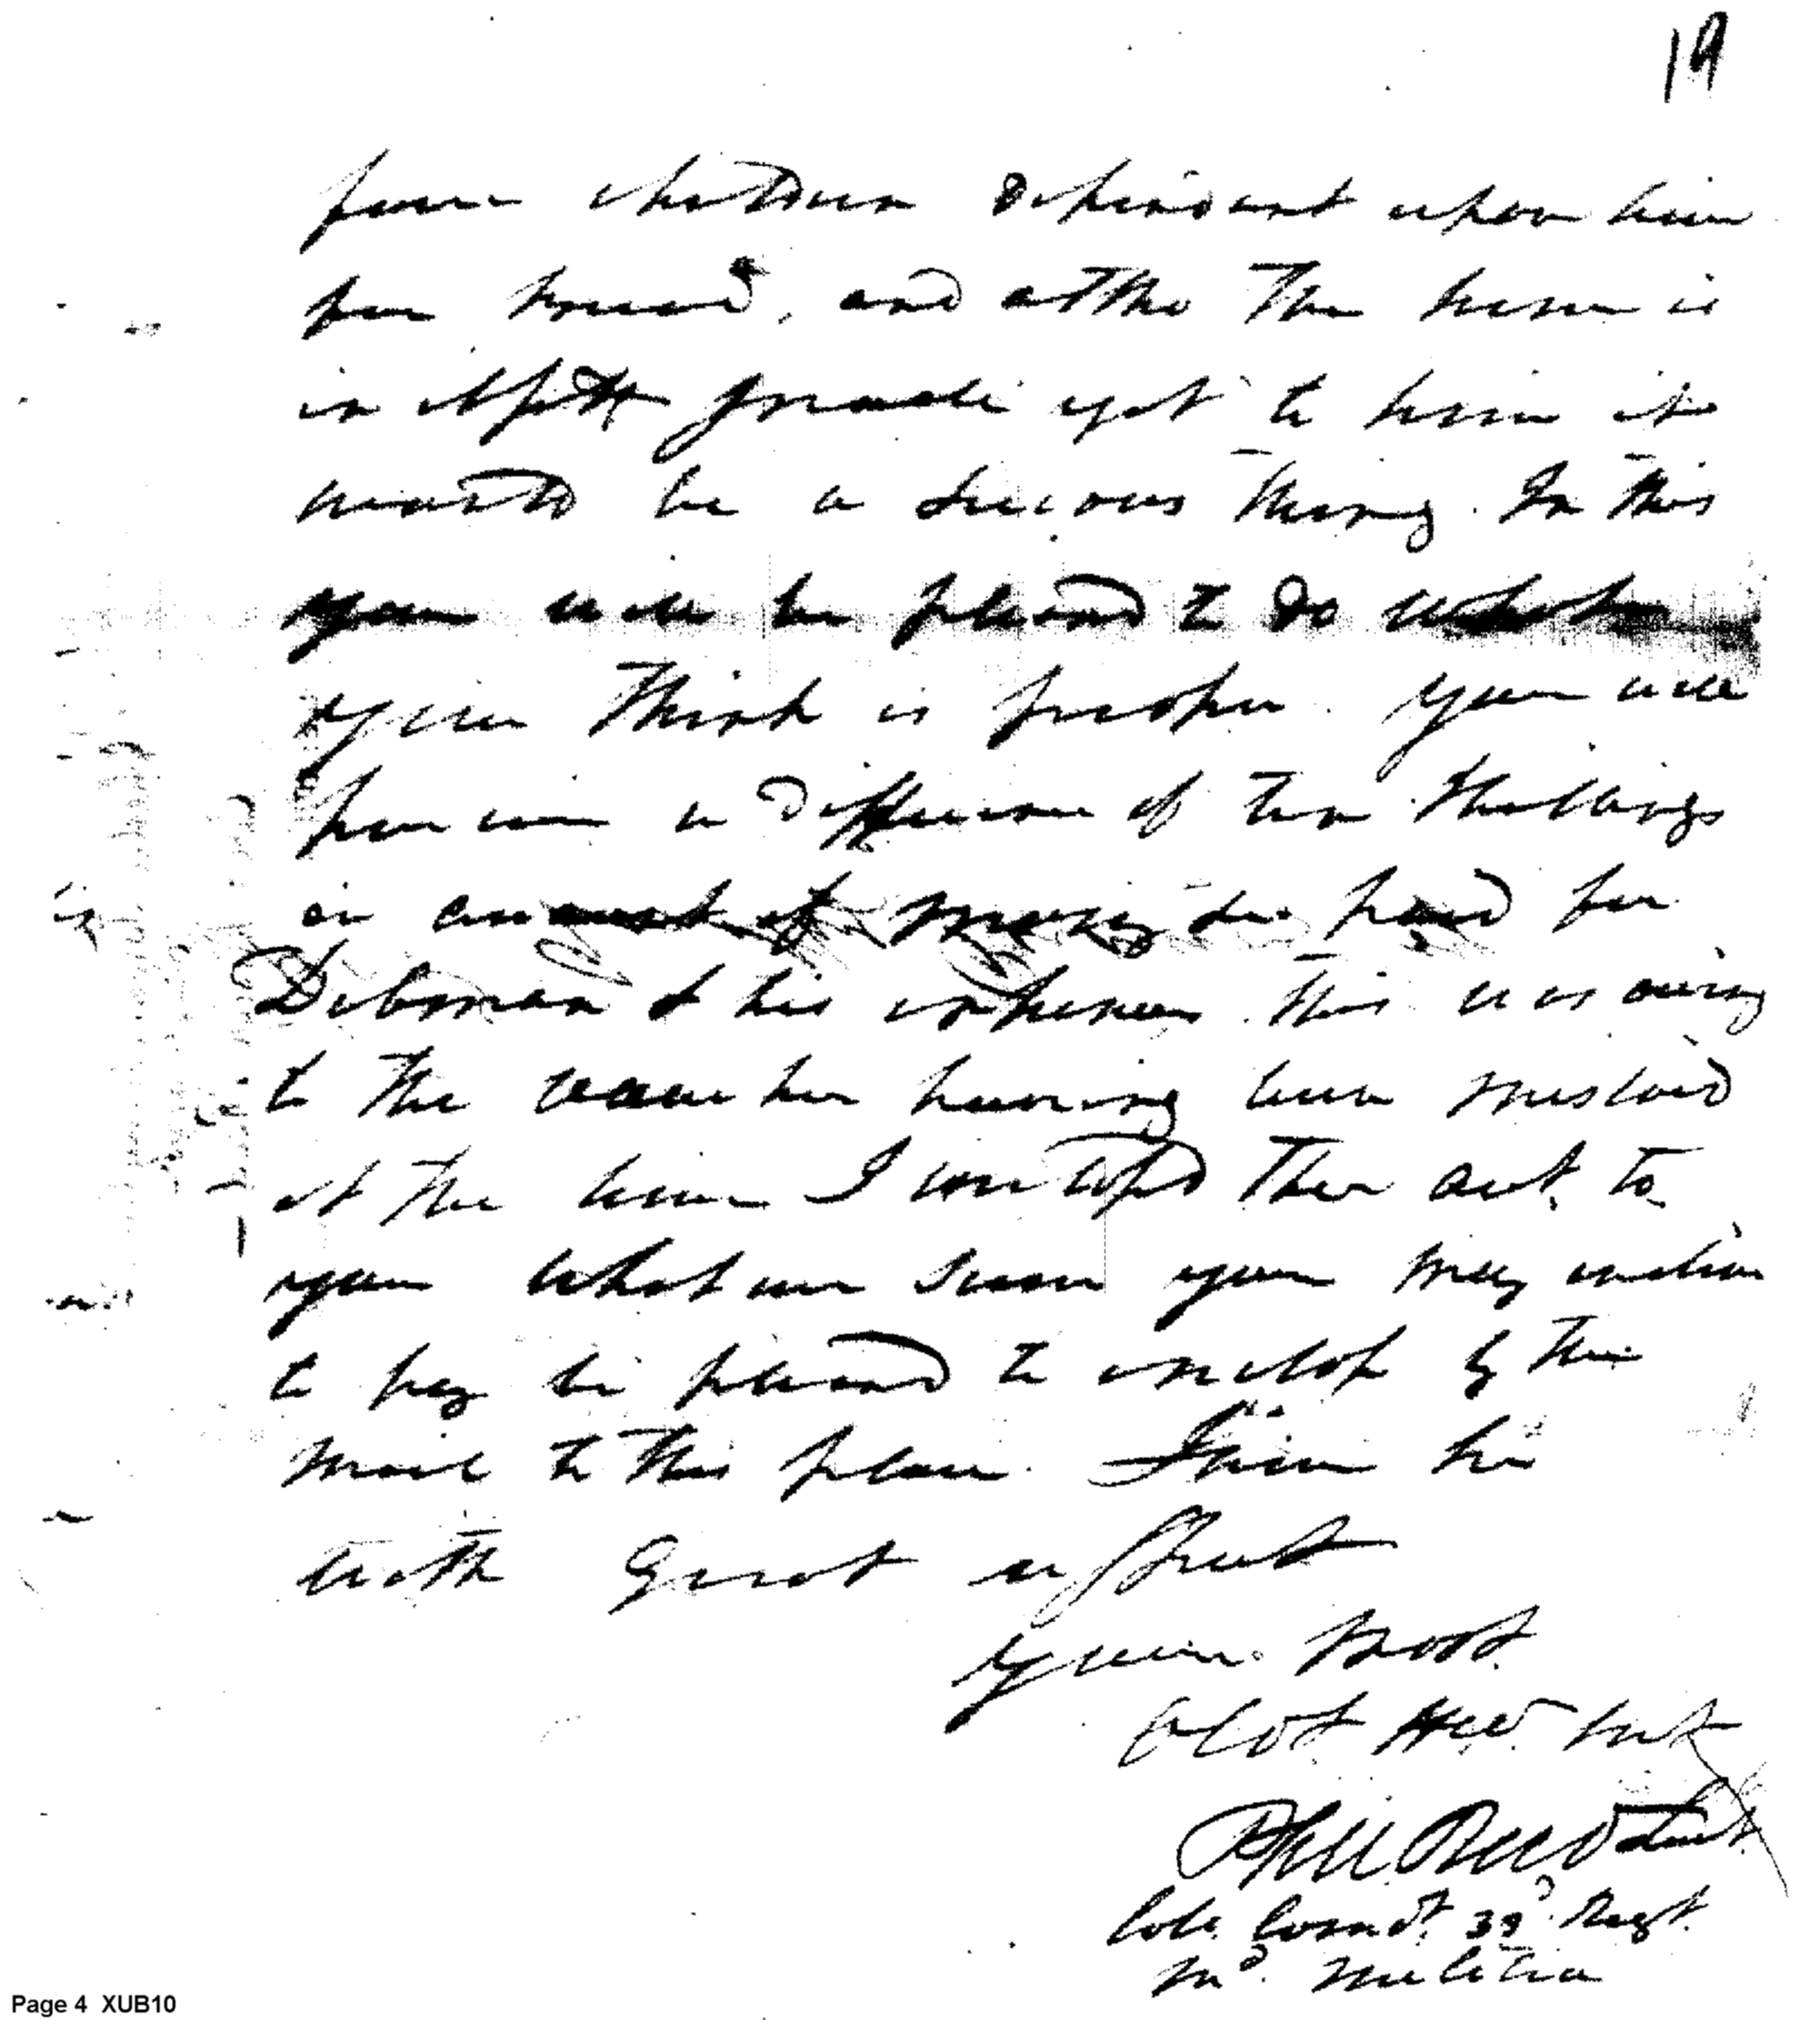 19
four children dependant upon him
for bread, and altho the sum is
in itself small yet to him it
would be a serious thing. In this
you will be pleased to do what
you think is proper. You will
perceive a difference of ten shillings
in amount of money he paid for
Dobsman & his expenses this was owing
to the voucher having been mislaid
at the time I inclosed the act. to
you whatever sum you may incline
to pay be pleased to inclose by the
mail to this place. I am Sir
with Great respect
Your most
Obdt Hble Sert
Phil Reed Lieut
Coll. Comdt. 33d Regt.
Md. Militia
Page 4 XUB10